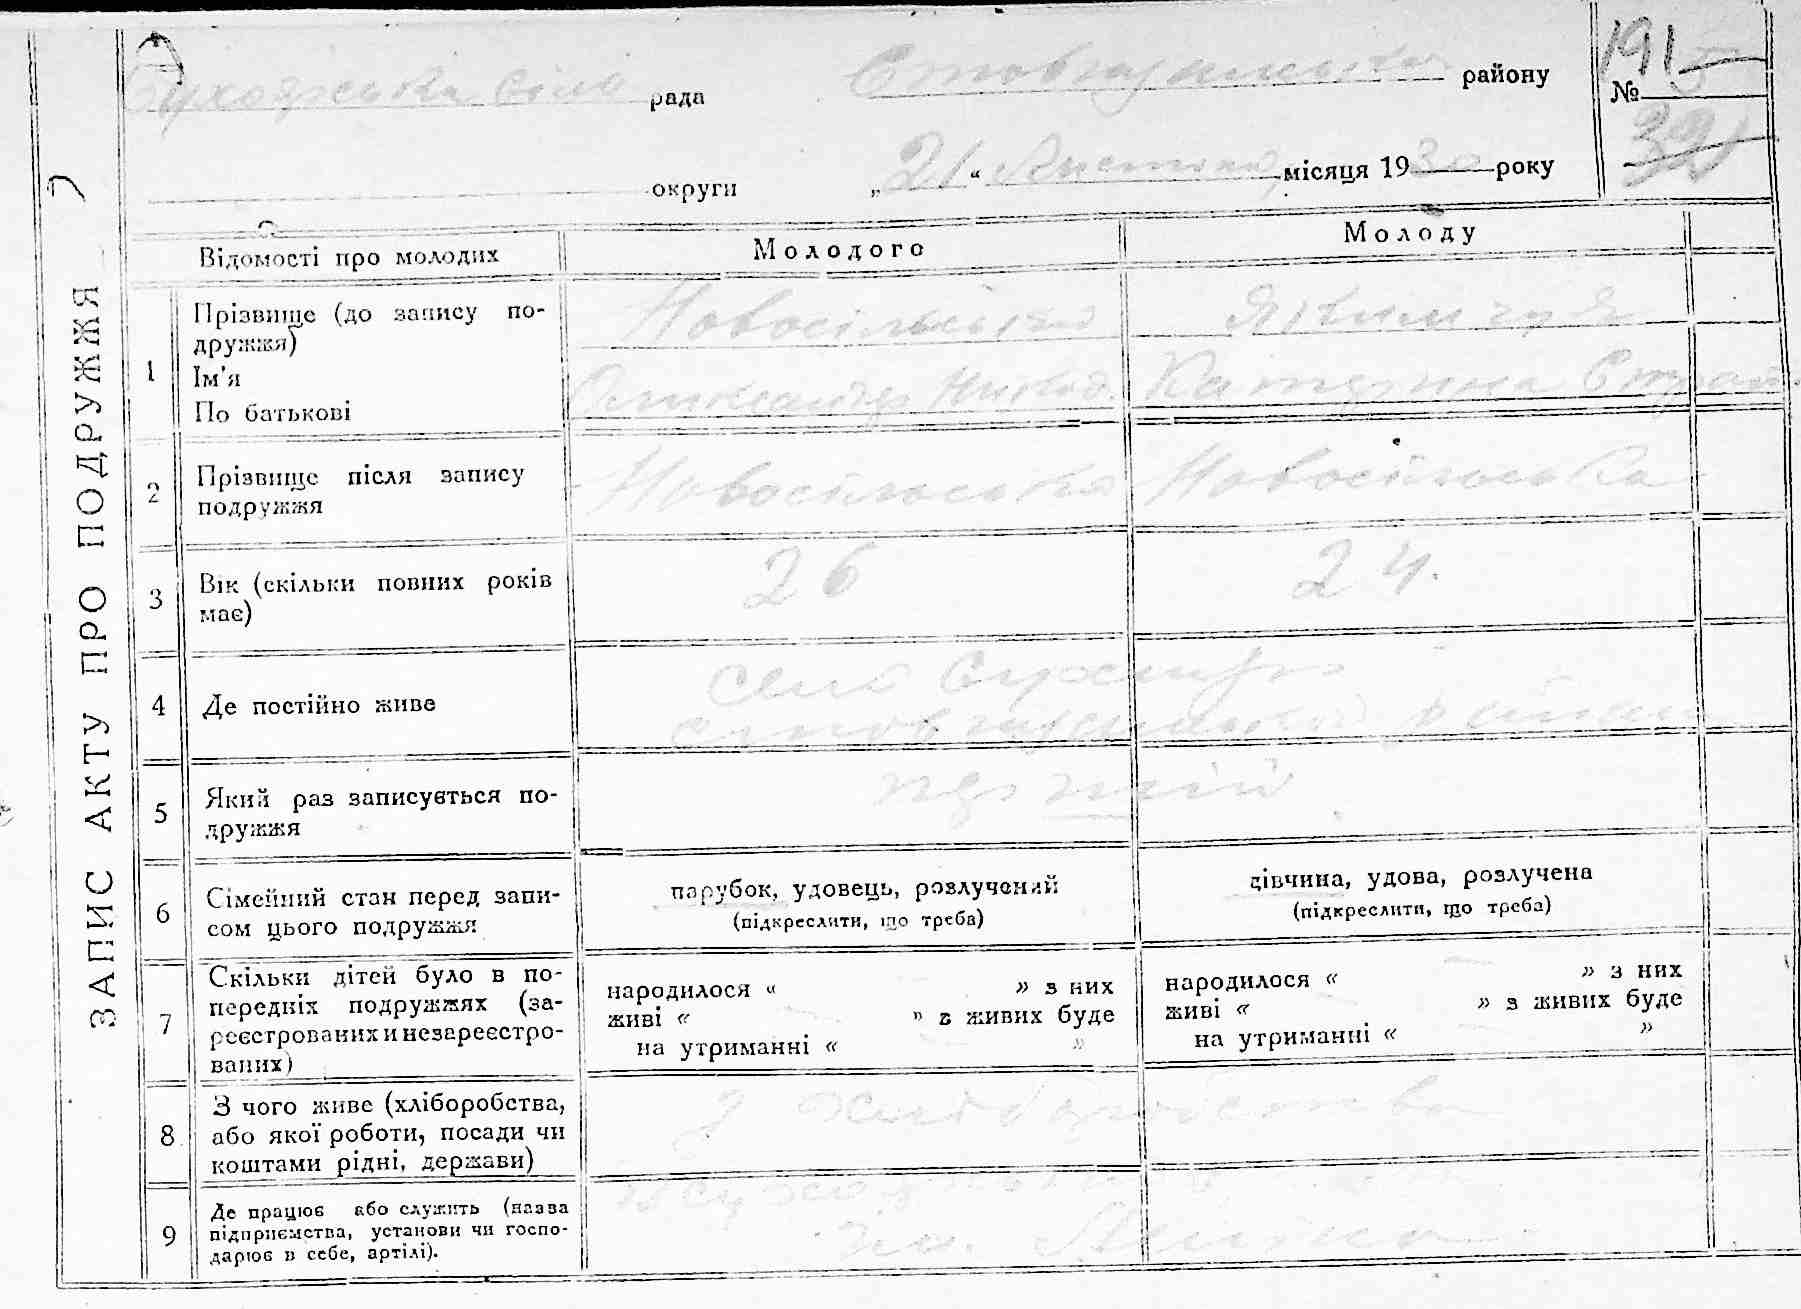 191
рада
району
№
39
округи „21“ місяця 1930 року
ЗАПИС АКТУ ПРО ПОДРУЖЖЯ
Відомості про молодих
Молодого
Молоду
1
Прізвище (до запису по-
дружжя)
Ім'я
По батькові
Новосільський
Олександр
Катерина
2
Прізвище після запису
подружжя
Новосільська
3
Вік (скільки повних років
має)
26
24.
4
Де постійно живе
село
5
Який раз записується по-
дружжя
6
Сімейний стан перед запи-
сом цього подружжя
парубок, удовець, розлучений
(підкреслити, що треба)
дівчина, удова, розлучена
(підкреслити, що треба)
7
Скільки дітей було в по-
передніх подружжях (за-
реєстрованих и незареєстро-
ваних)
народилося « » з них
живі « » з живих буде
на утриманні « »
народилося « » з них
живі « » з живих буде
на утриманні « »
8
З чого живе (хліборобства,
або якої роботи, посади чи
коштами рідні, держави)
з хліборобства
9
Де працює або служить (назва
підприємства, установи чи госпо-
дарює в себе, артілі).
ім.